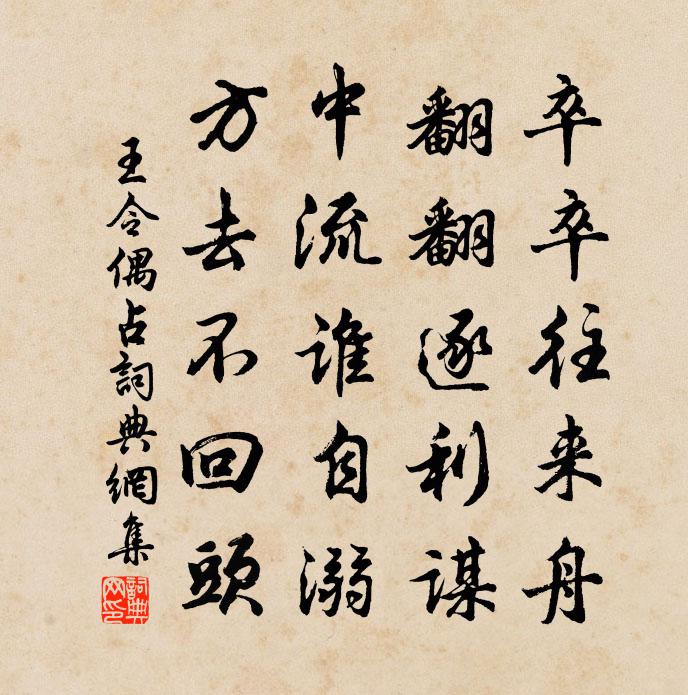 卒卒往来舟
翻翻逐利谋
中流谁自溺
方去不回頭
王令偶占詞典網集
詞典
网印